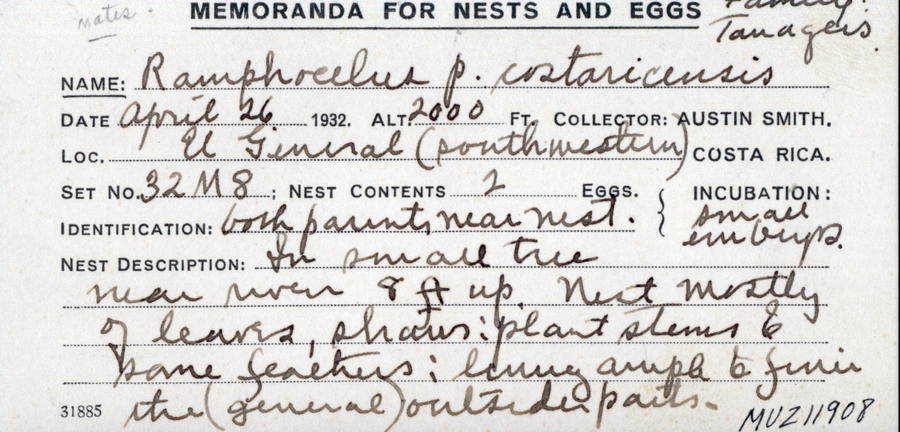 mates.
MEMORANDA FOR NESTS AND EGGS
Family:
Tanagers.
NAME: Ramphocelus p. costaricensis
DATE April 26 1932. ALT. 2000 FT. COLLECTOR: AUSTIN SMITH.
LOC. El General (southwestern) COSTA RICA.
SET NO. 32 M 8 ; NEST CONTENTS 2 EGGS. { INCUBATION:
IDENTIFICATION: both parents near nest. small
embryos.
NEST DESCRIPTION: In small tree
near river 8 ft up. Nest mostly
of leaves, straws; plant stems &
some feathers; lining &
the (general) outside parts.
31885
MVZ 11908